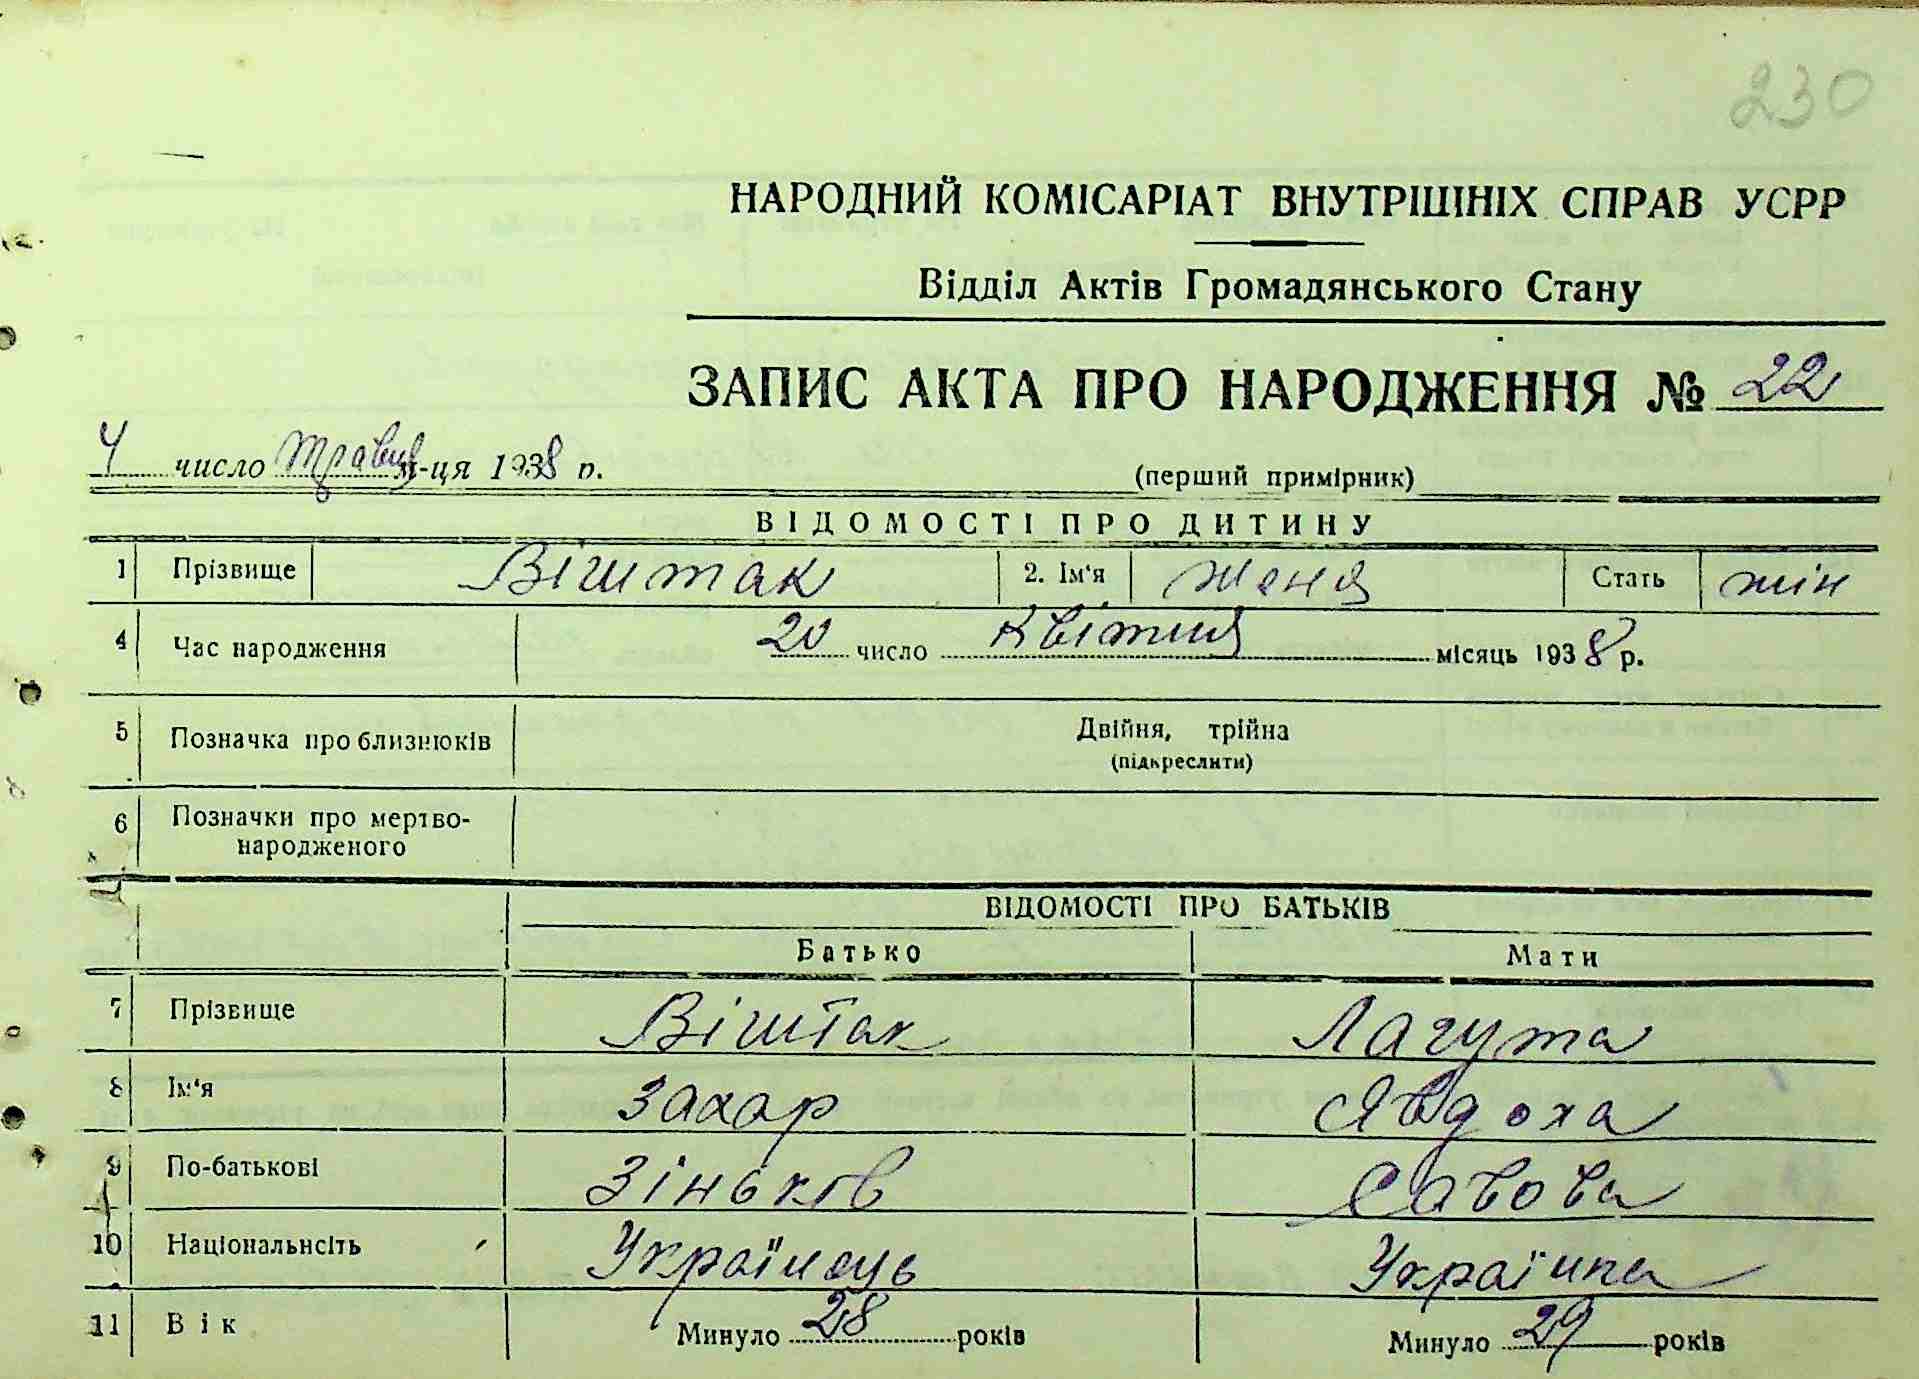 230
НАРОДНИЙ КОМІСАРІАТ ВНУТРІШНІХ СПРАВ УСРР
Відділ Актів Громадянського Стану
ЗАПИС АКТА ПРО НАРОДЖЕННЯ № 22
4 число травця м-ця 1938 р.
(перший примірник)
ВІДОМОСТІ ПРО ДИТИНУ
1 Прізвище Віштак 2. Ім'я Женя Стать жін
4 Час народження 20 число Квітня місяць 1938 р.
5 Позначка про близнюків Двійня, трійна
(підкреслити)
6 Позначки про мертво-
народженого
ВІДОМОСТІ ПРО БАТЬКІВ
Батько Мати
7 Прізвище Віштак Лагута
8 Ім'я Захар Явдоха
9 По-батькові Зіньків Савова
10 Національнсіть Українець Українка
11 Вік Минуло 28 років Минуло 29 років